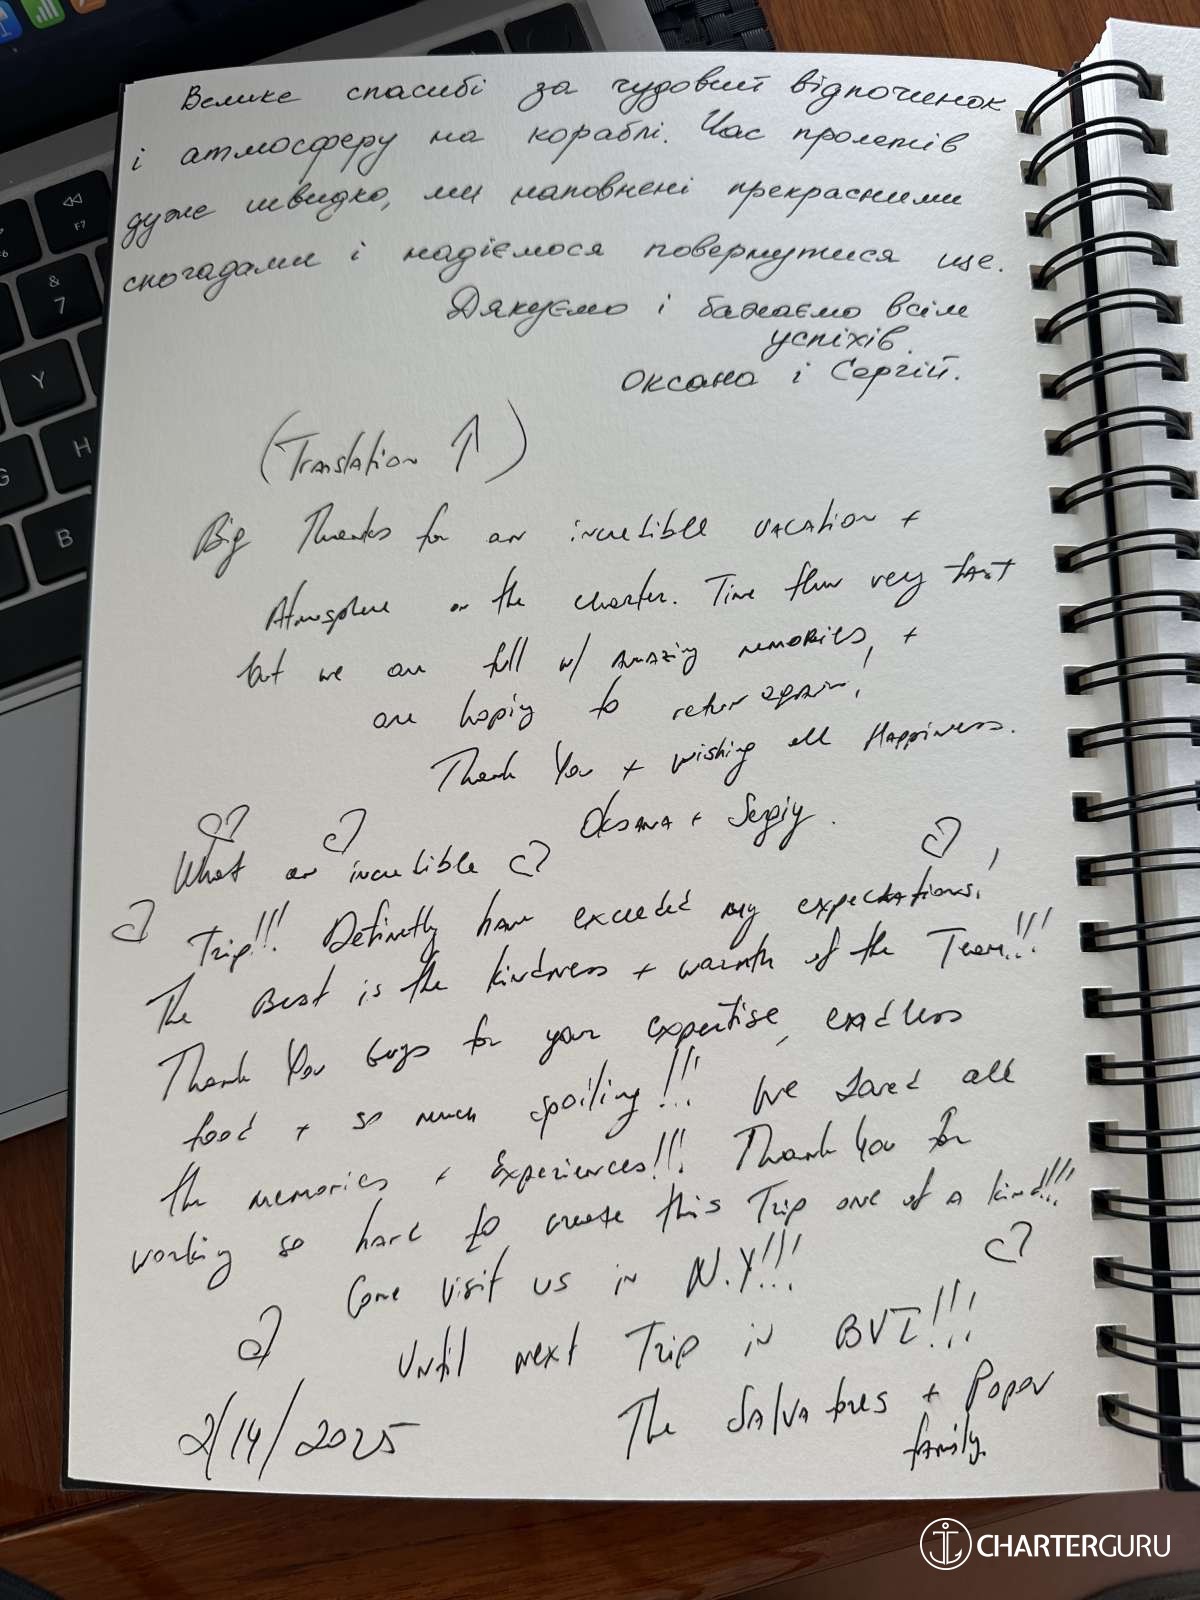 Велике спасибі за чудовий відпочинок
і атмосферу на кораблі. Час пролетів
дуже швидко, ми наповнені прекрасними
спогадами і надіємося повернутися ще.
Дякуємо і бажаємо всім
успіхів.
Оксана і Сергій.
(Translation ↑)
Big Thanks for an incredible vacation +
Atmosphere on the charter. Time flew very fast
but we are full w/ amazing memories, +
are hoping to return again!
Thank You + wishing all Happiness.
Oksana + Sergiy.
What an incredible
Trip!!! Definetly have exceeded my expectations!
The Best is the kindness + warmth of the Team!!!
Thank You Guys for your expertise, endless
food + so much spoiling!!! We Loved all
the memories + Experiences!!! Thank You for
working so hard to create this Trip one of a kind!!!
Come visit us in N.Y!!!
Until next Trip in BVI!!!
2/14/2025
The Salvatores + Popov
family.
CHARTERGURU
F7
&
7
Y
H
G
B